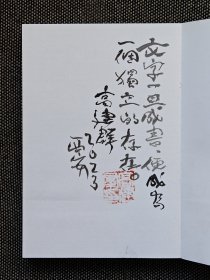 文字一旦成书，便成为
一個獨立的存在
高建群
2023
西安